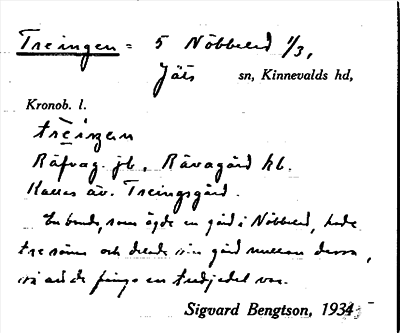 Treingen = 5 Nöbbeled 1/3,
Jäts sn, Kinnevalds hd,
Kronob. l.
trèingen
Räfvag. jb, Rävagård kb.
Kallas äv. Treingsgård.
En bonde, som ägde en gård i Nöbbeled, hade
tre söner och delade sin gård mellan dessa,
så att de fingo en tredjedel var.
Sigvard Bengtson, 1934